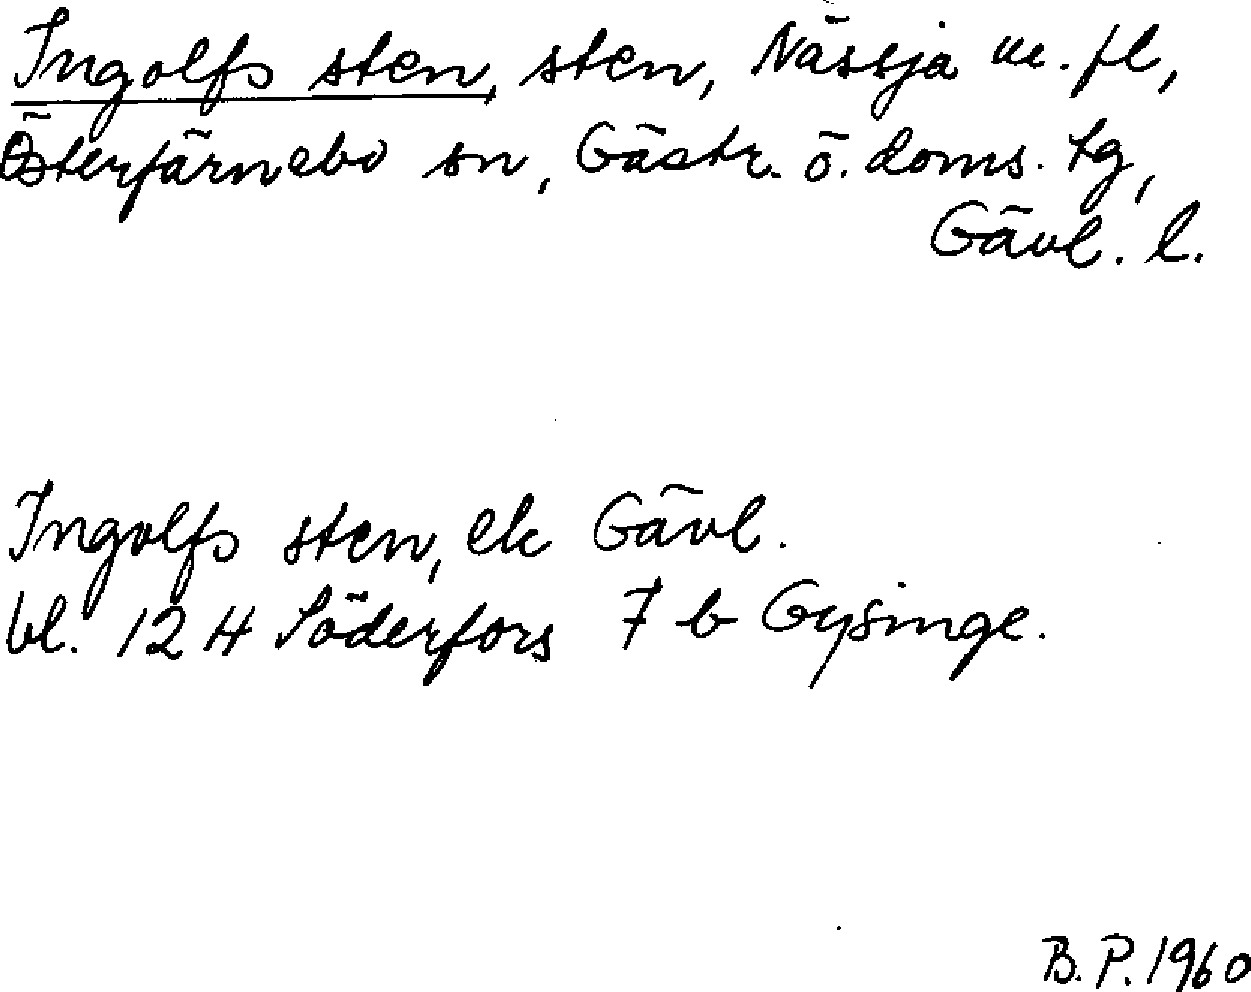 Ingolfs sten, sten, Nässja m. fl,
Österfärnebo sn, Gästr. ö. doms. tg,
Gävl. l.
Ingolfs sten, ek Gävl.
bl. 12 H Söderfors 7 b Gysinge.
B. P. 1960